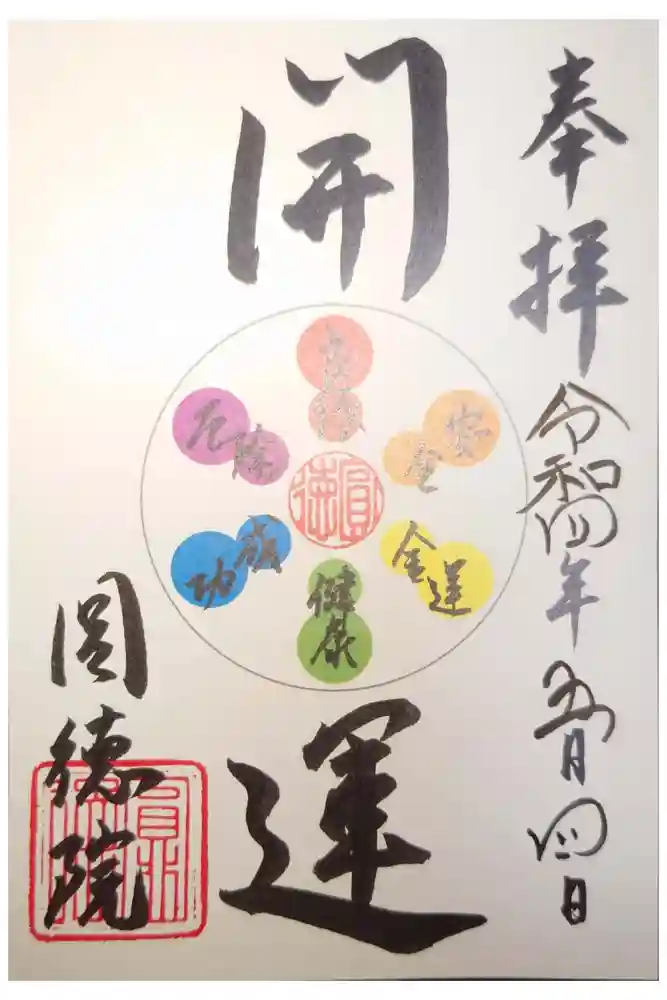 奉拝
令和四年五月四日
開
安全
金運
健康
成功
厄除
圓徳
運
圓徳院